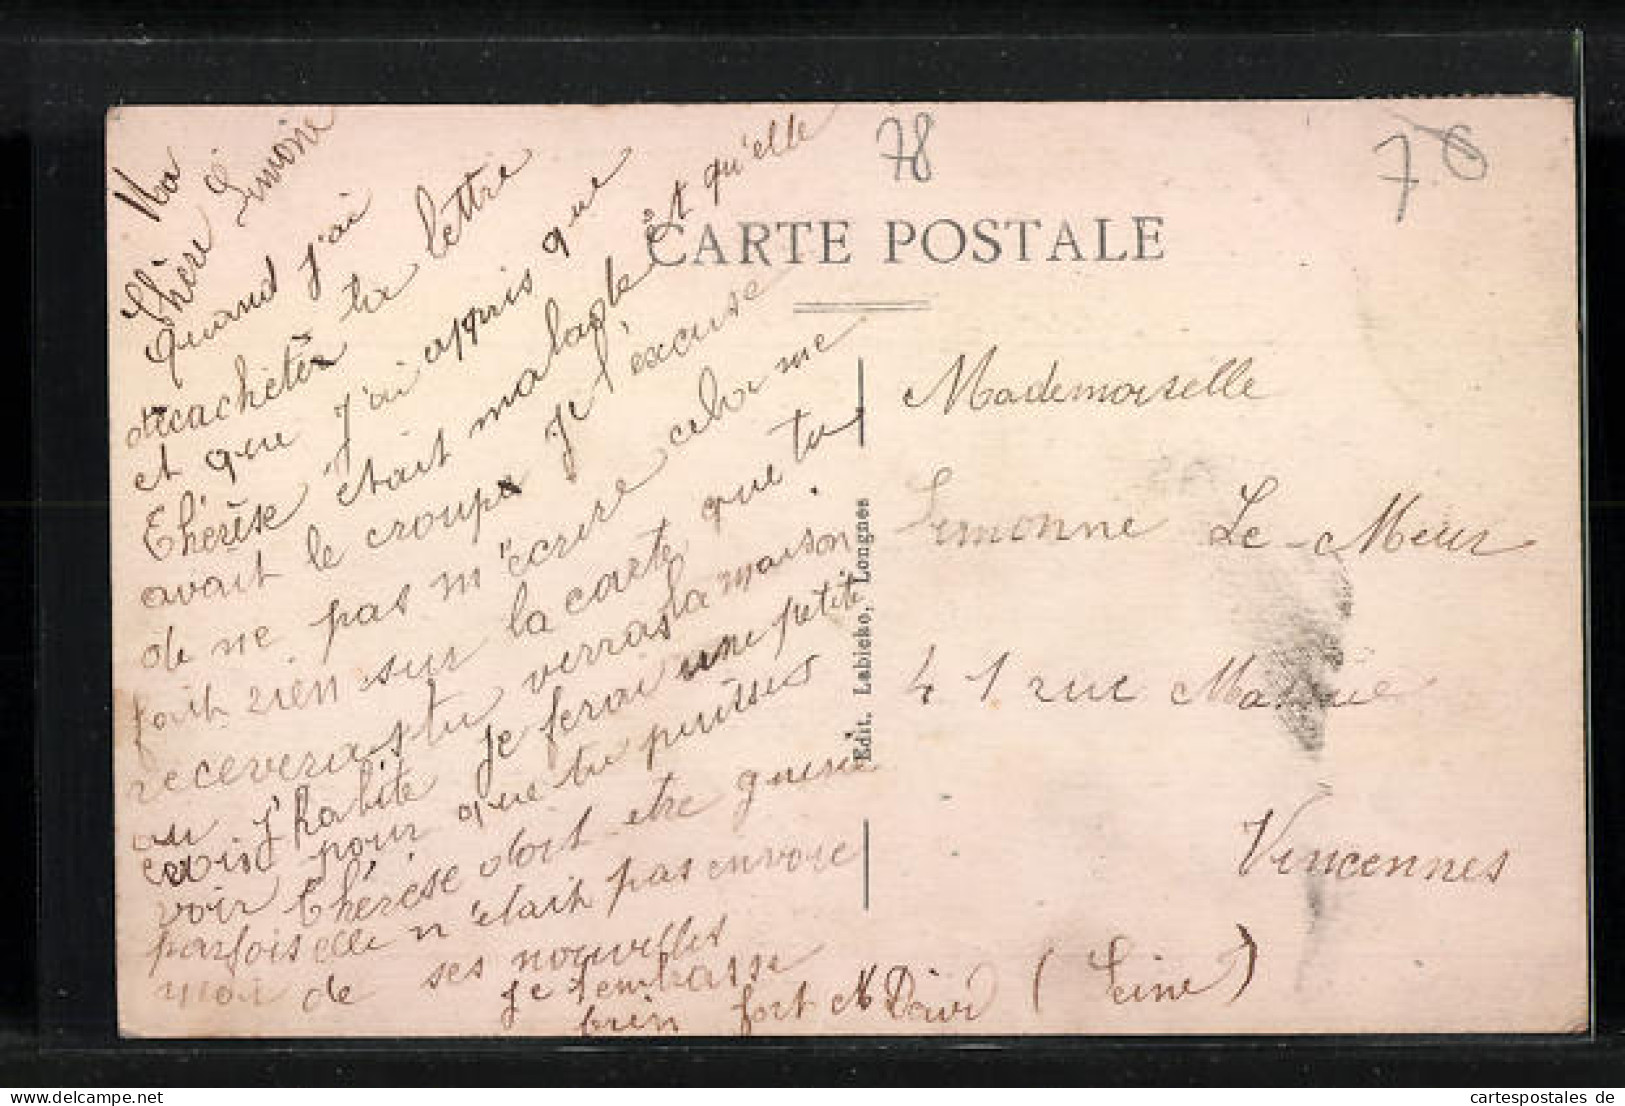 Ma
Chère Simone
Quand j'ai
décachetér ta lettre
et que j'ai appris que
Thérèse était malade et qu'elle
avait le croup je l'excuse
de ne pas m'écrire cela me
fait rien sur la carte que tu
receveras tu verras la maison
ou j'habite je ferai une petite
croix pour que tu puisses
voir Thérèse doit etre guerie
parfois elle n'était pas envoie
moi de ses nouvelles
je t'embrasse
bien fort M David
78
7.6
CARTE POSTALE
Edit. Labicko, Longnes
Mademoiselle
Simonne Le Meur
41 rue
Vincennes
(Seine)
cartespostales de
www.cartespostales.de